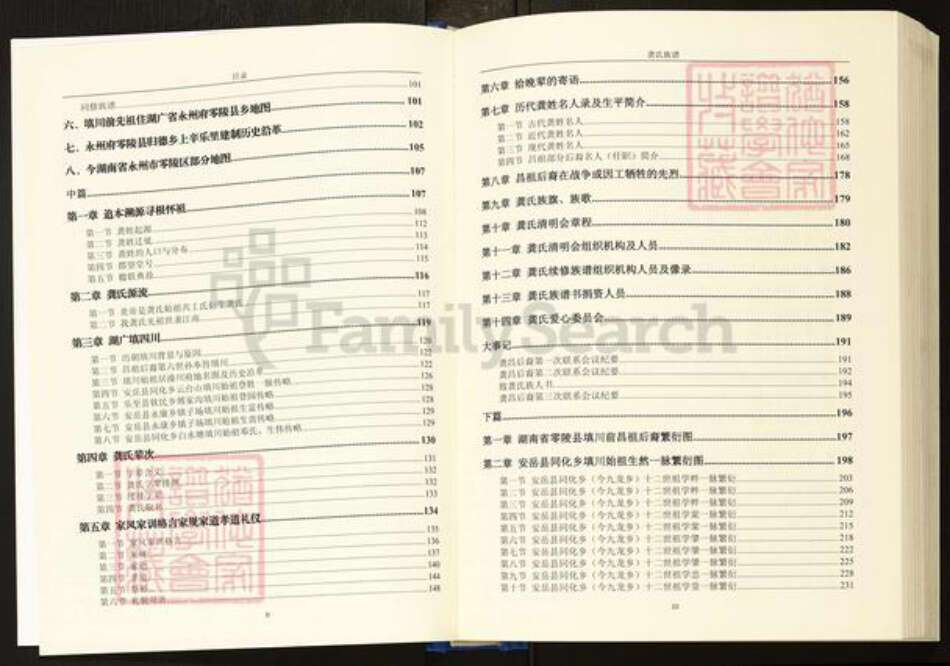 目录
同修族谱 101
六、填川前先祖住湖广省永州府零陵县乡地图 101
七、永州府零陵县归德乡上辛乐里建制历史沿革 102
八、今湖南省永州市零陵区部分地图 105
中篇 107
第一章 追本溯源寻根怀祖 107
第一节 龚姓起源 108
第二节 龚姓迁徙 112
第三节 龚姓的人口与分布 113
第四节 郡望堂号 114
第五节 楹联典故 115
第二章 龚氏源流 116
第一节 117
第二节 我龚氏先祖世袭江南 117
第三章 湖广填四川 119
第一节 历朝填川背景与原因 120
第二节 昌祖后裔第六世孙奉旨填川 122
第三节 填川始祖居潼川府地名图及历史沿革 122
第四节 安岳县同化乡云台山填川始祖登胜一脉传略 126
第五节 128
第六节 安岳县永康乡镇子场填川始祖生富传略 128
第七节 安岳县永康乡镇子场填川始祖生贵传略 129
第八节 安岳县同化乡白水塘填川始祖邓氏、生伟传略 129
第四章 龚氏辈次 130
第一节 字辈含义 131
第二节 132
第三节 133
第四节 134
第五章 家风家训格言家规家道孝道礼仪 134
第一节 135
第二节 136
第三节 137
第四节 140
第五节 144
第六节 148
II
龚氏族谱
第六章 给晚辈的寄语 156
第七章 历代龚姓名人录及生平简介 158
第一节 古代龚姓名人 158
第二节 近代龚姓名人 162
第三节 现代龚姓名人 165
第四节 昌祖部分后裔名人（任职）简介 168
第八章 昌祖后裔在战争或因工牺牲的先烈 178
第九章 龚氏族旗、族歌 179
第十章 龚氏清明会章程 180
第十一章 龚氏清明会组织机构及人员 182
第十二章 龚氏续修族谱组织机构人员及像录 186
第十三章 龚氏族谱书捐资人员 188
第十四章 龚氏爱心委员会 189
大事记 191
龚昌后裔第一次联系会议纪要 191
龚昌后裔第二次联系会议纪要 192
致龚氏族人书 194
龚昌后裔第三次联系会议纪要 195
下篇 196
第一章 湖南省零陵县填川前昌祖后裔繁衍图 197
第二章 安岳县同化乡填川始祖生然一脉繁衍图 198
第一节 安岳县同化乡（今九龙乡）十二世祖学 一脉繁衍 203
第二节 安岳县同化乡（今九龙乡）十二世祖学 一脉繁衍 206
第三节 安岳县同化乡（今九龙乡）十二世祖学 一脉繁衍 209
第四节 安岳县同化乡（今九龙乡）十二世祖学 一脉繁衍 212
第五节 安岳县同化乡（今九龙乡）十二世祖学 一脉繁衍 215
第六节 安岳县同化乡（今九龙乡）十二世祖学 一脉繁衍 218
第七节 安岳县同化乡（今九龙乡）十二世祖学 一脉繁衍 222
第八节 安岳县同化乡（今九龙乡）十二世祖学 一脉繁衍 225
第九节 安岳县同化乡（今九龙乡）十二世祖学忠一脉繁衍 228
第十节 安岳县同化乡（今九龙乡）十二世祖学 一脉繁衍 231
III
FamilySearch